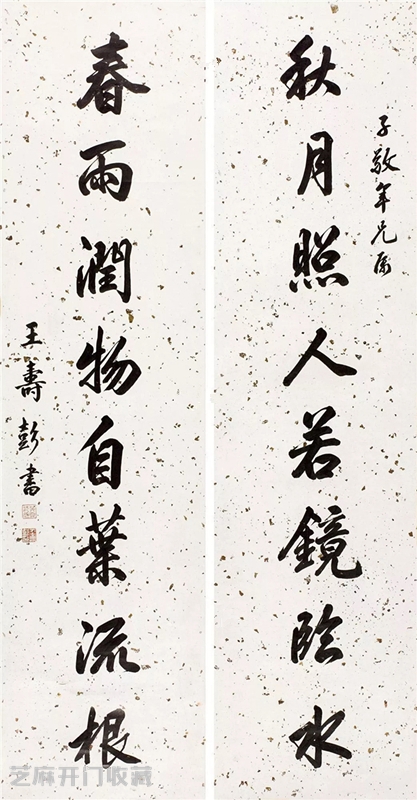 子敬年兄属
秋月照人若鏡臨水
春雨潤物自葉流根
王壽彭書
芝麻开门收藏